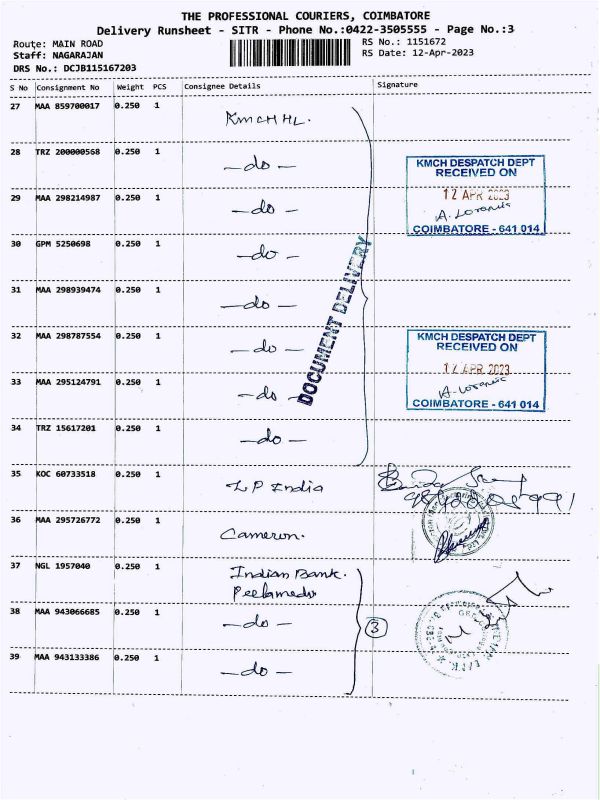 THE PROFESSIONAL COURIERS, COIMBATORE
Delivery Runsheet - SITR - Phone No.:0422-3505555 - Page No.:3
Route: MAIN ROAD
RS No.: 1151672
Staff: NAGARAJAN
RS Date: 12-Apr-2023
DRS No.: DCJB115167203
S No Consignment No Weight PCS Consignee Details Signature
27 MAA 859700017 0.250 1 KMCH HL.
28 TRZ 200000568 0.250 1 -do-
KMCH DESPATCH DEPT
RECEIVED ON
12 APR 2023
COIMBATORE - 641 014
29 MAA 298214987 0.250 1 -do-
30 GPM 5250698 0.250 1 -do-
31 MAA 298939474 0.250 1 -do-
DOCUMENT DELIVERY
32 MAA 298787554 0.250 1 -do-
KMCH DESPATCH DEPT
RECEIVED ON
12 APR 2023
COIMBATORE - 641 014
33 MAA 295124791 0.250 1 -do-
34 TRZ 15617201 0.250 1 -do-
35 KOC 60733518 0.250 1 LP India
36 MAA 295726772 0.250 1 Cameron.
37 NGL 1957040 0.250 1 Indian Bank.
Peelamedu
38 MAA 943066685 0.250 1 -do-
3
39 MAA 943133386 0.250 1 -do-